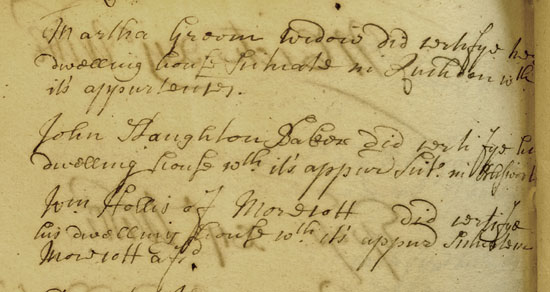 Martha Groom widow did certifye he
dwelling house Situate in Rushden wth
it's appurtences.
John Haughton Baker did certifye hi
dwelling house wth it's appur Sitt. in
Wm. Hollis of Morcott did certifye
his dwelling house wth it's appur Situate in
Morcott afsd